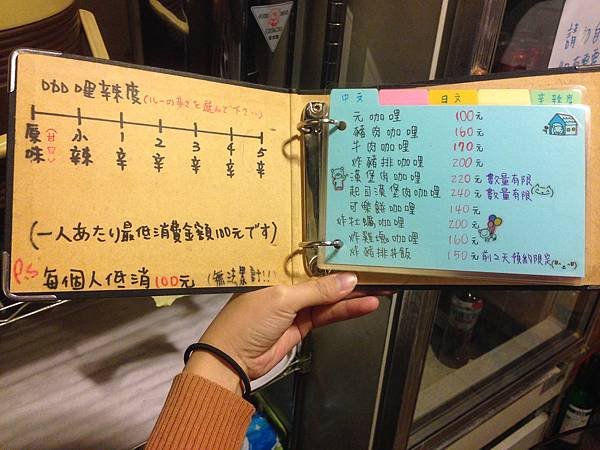 咖哩辣度(ルーの辛さを選んで下さい)
原味(甘口) 小辣 1辛 2辛 3辛 4辛 5辛
(一人あたり最低消費金額100元です)
P.S 每個人低消100元 (無法累計!!)
中文 日文 辛辣度
元咖哩 100元
豬肉咖哩 160元
牛肉咖哩 170元
炸豬排咖哩 200元
漢堡肉咖哩 220元 數量有限
起司漢堡肉咖哩 240元 數量有限
可樂餅咖哩 140元
炸牡蠣咖哩 200元
炸雞塊咖哩 160元
炸豬排丼飯 150元 前2天預約限定
請勿